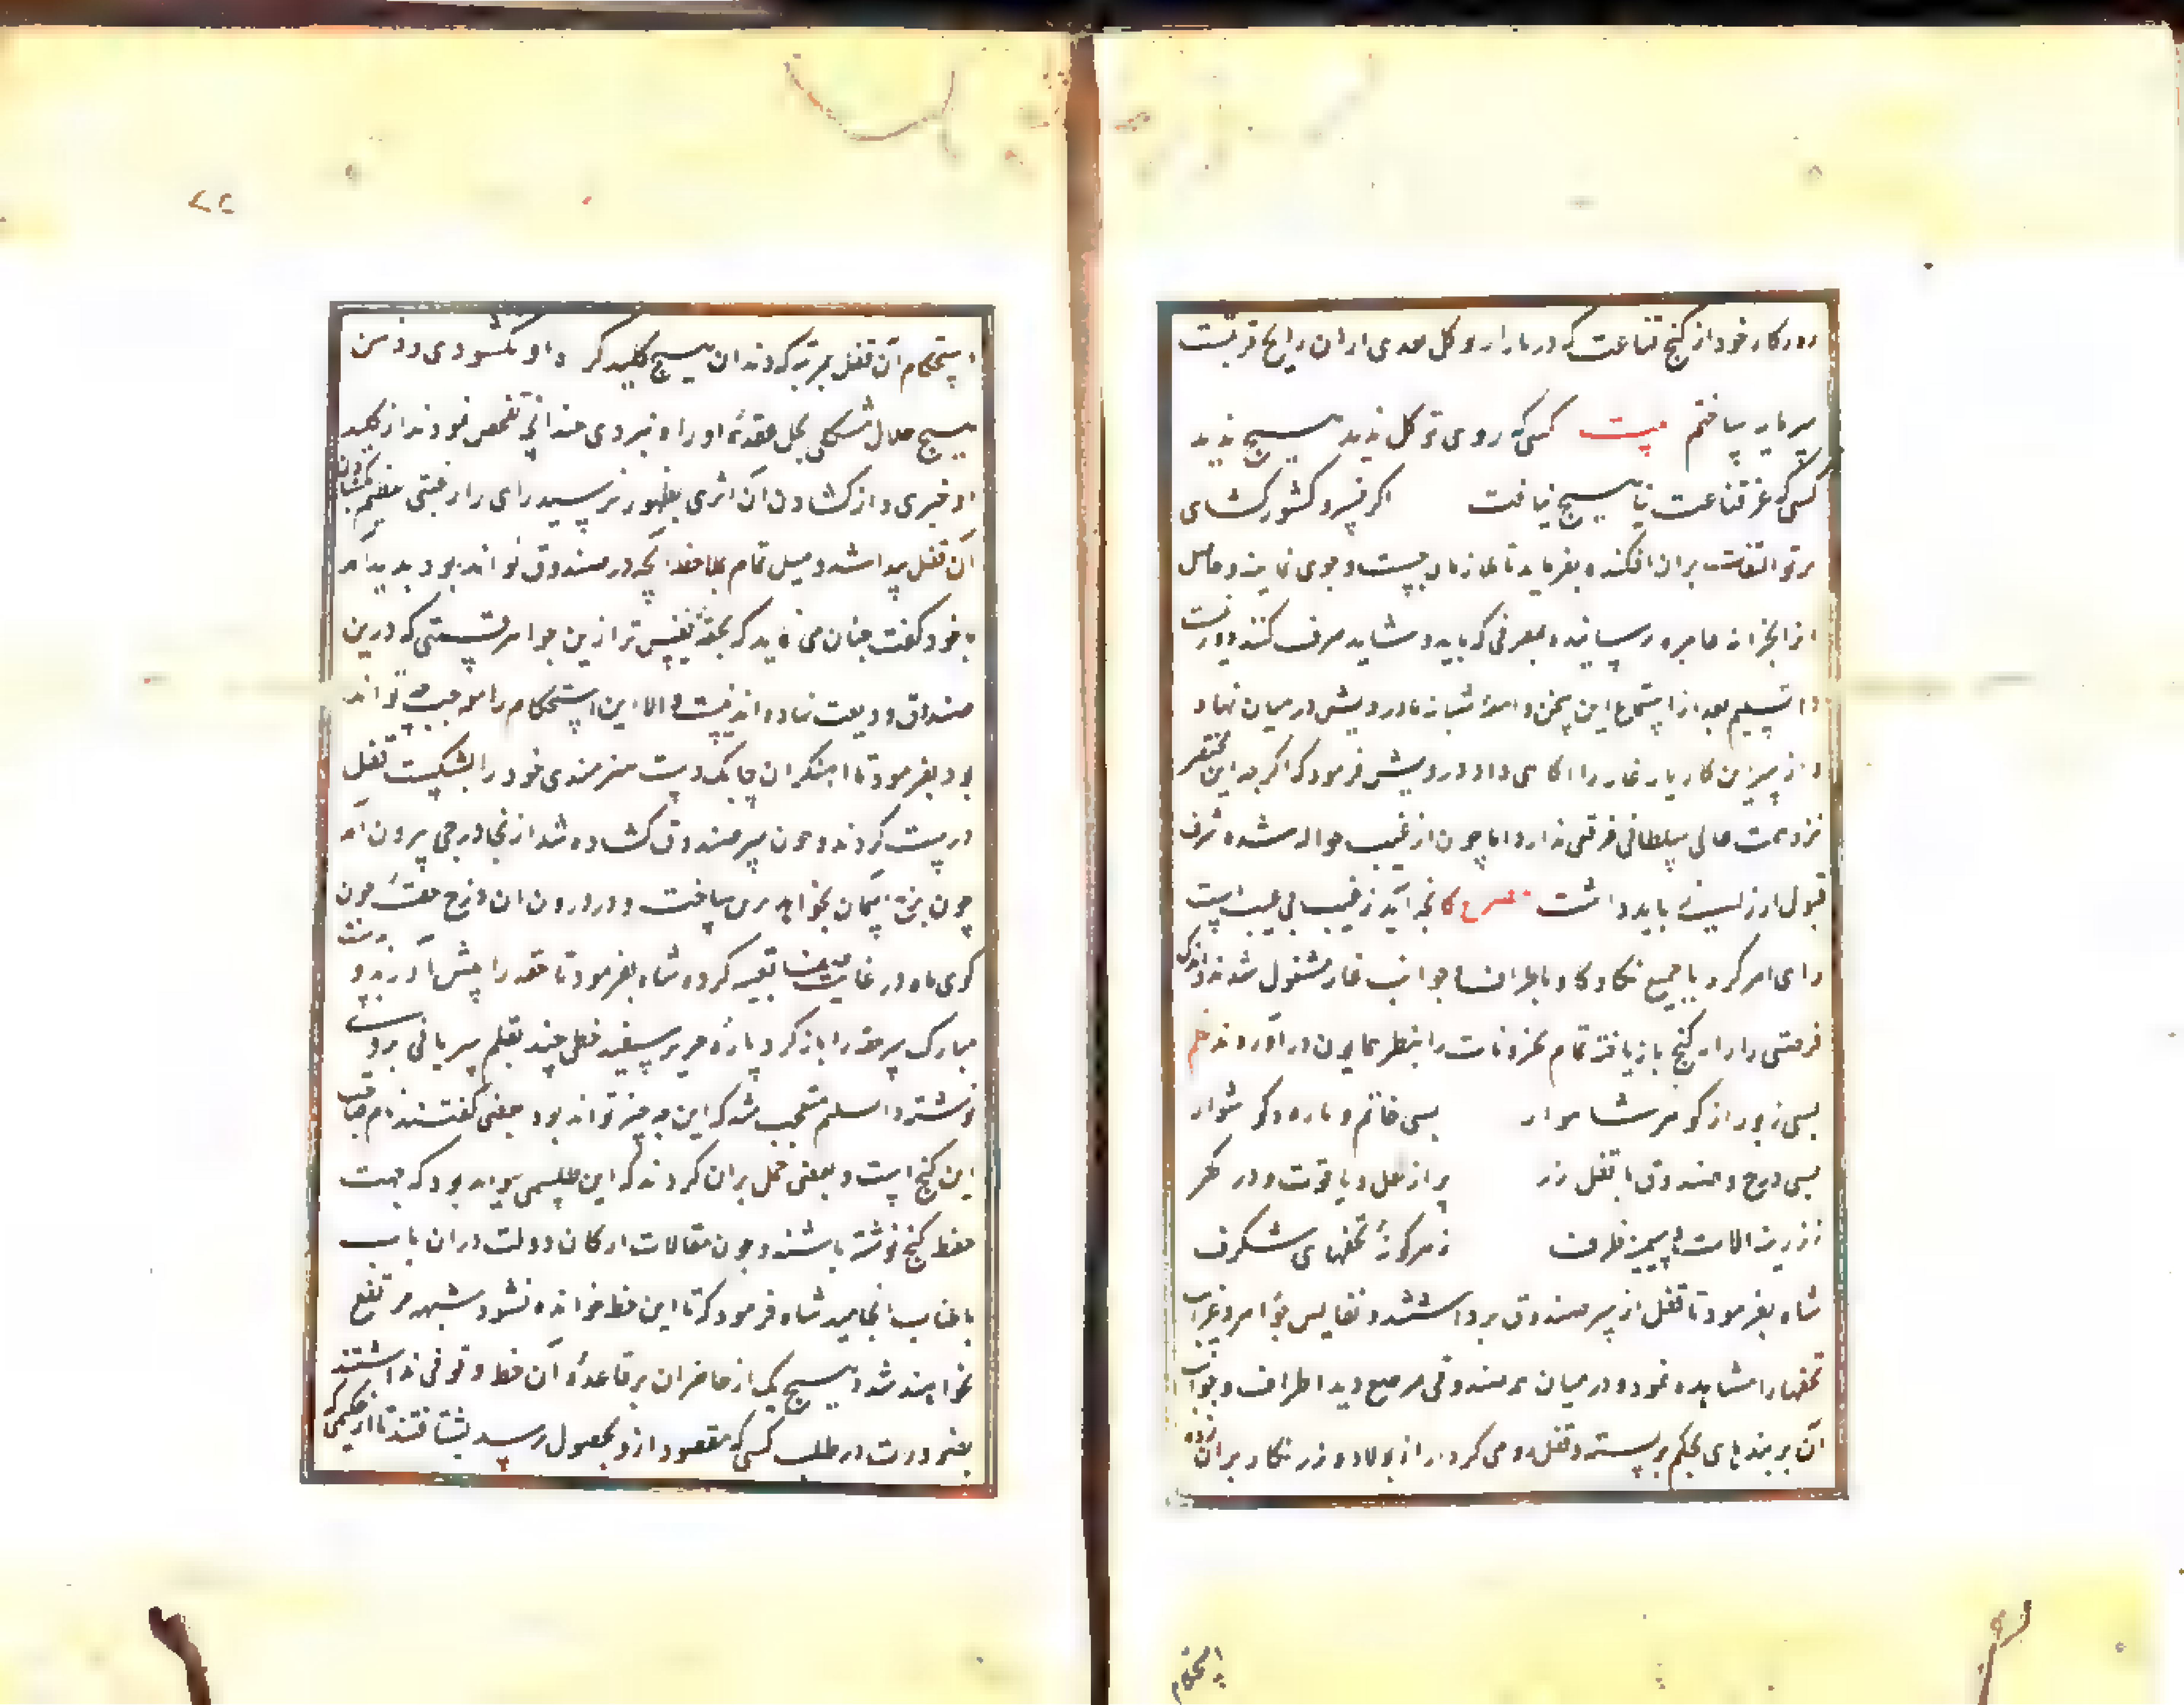 روزکار خود از کنج قناعت که در بازار توکل نقدی از ان رایج تر نیست
سرمایه ساختم بیت کسی که روی توکل ندید هیچ ندید
کسی که عز قناعت نیافت هیچ نیافت اگر خسرو کشورکشای
پرتو التفات بران افکند و بفرماید تا کارکنان جست وجوی نمایند و حاصل
انرا بخزانه عامره رسانیده بمصرفی که باید و شاید صرف کنند دور نیست
دابشلیم بعد از استماع این سخن واقعه شبانه با درویش در میان نهاد
و از سر این کار یار غار را اکاهی داد درویش فرمود که اگرچه این محقر
نزد همت عالی سلطانی قدری ندارد اما چون از غیب حواله شده شرف
قبول ارزانی باید داشت مصرع کانچه آید ز غیب بی عیب است
رای امر کرد تا جمیع بکاوکاو باطراف و جوانب غار مشغول شدند و باندک
فرصتی راه آن کنج بازیافته تمام مخزونات را بنظر همایون در آوردند نظم
بسی زیور از کوهر شاهوار بسی خاتم و یاره و کوشوار
بسی درج و صندوق با قفل زر پر از لعل و یاقوت و در و کهر
ز زرینه آلات و سیمینه ظرف ز هر کونه تحفهای شکرف
شاه بفرمود تا قفل از سر صندوق برداشتند و نفایس جواهر و غرایب
تحفها را مشاهده نمود و در میان همه صندوقی مرصع دید اطراف و جوانب
آن بر بندهای محکم بربسته و قفل رومی کردار از پولاد زرنکار بران زده
استحکام
استحکام آن قفل بمرتبه که دندان هیچ کلید کره او نکشودی و ذهن
هیچ حلال مشکلی بحل عقده او راه نبردی چندانچه تفحص نمودند از کلید
او خبری و از کشادن آن اثری بظهور نرسید رای را رغبتی عظیم بکشادن
آن قفل پیدا شد و میل تمام بملاحظه آنچه در صندوق تواند بود پدید آمد
با خود کفت چنان می نماید که تحفه نفیس تر ازین جواهر قیمتی که درین
صندوق ودیعت نهاده اند نیست و الا این استحکام را موجب چه تواند
بود بفرمود تا آهنکران چابک دست هنرمندی خود را بشکست قفل
درست کردند و چون سر صندوق کشاده شد از آنجا درجی بیرون آمد
چون برج آسمان بجواهر می ساخت و در درون ان درج حقه چون
کوی ماه در غایت صفا تعبیه کرده شاه بفرمود تا حقه را پیش آورند و بدست
مبارک سر حقه را باز کرد پاره حریر سپید خطی چند بقلم سریانی بروی
نوشته دابشلیم متعجب شد که این چه چیز تواند بود بعضی کفتند نام صاحب
این کنج است و بعضی حمل بران کردند که این طلسمی تواند بود که جهت
حفظ کنج نوشته باشند و چون مقالات ارکان دولت در ان باب
باطناب انجامید شاه فرمود که تا این خط خوانده نشود شبهه مرتفع
نخواهد شد و هیچ یک از حاضران بر قاعده آن خط وقوفی نداشتند
بضرورت در طلب کسی که مقصود ازو بحصول رسد بشتافتند تا از حکیمی که